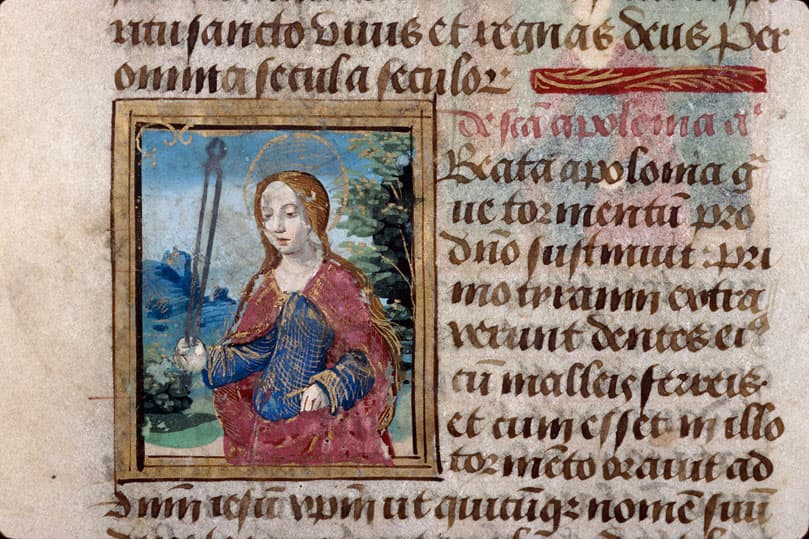 ritu sancto vivis et regnas deus Per
omnia secula seculoꝝ
de scā apolonia aᵃ
Beata apolonia gͣ
ue tormentū pro
dño sustinuit Pri
mo tyranni extra
xerunt dentes eiꝰ
cū malleis ferreis.
et cum esset in illo
tormēto orauit ad
dnm iesū xpm ut quicūqꝫ nomē suū